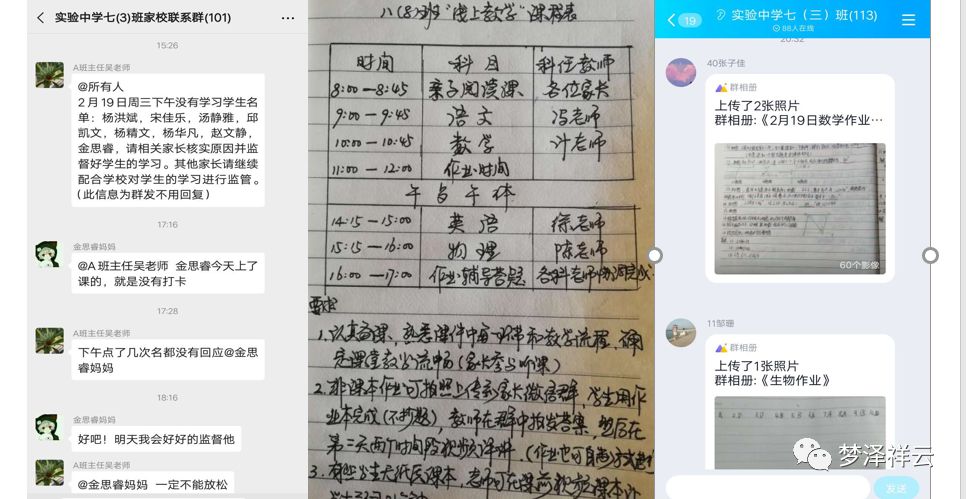 实验中学七(3)班家校联系群(101)
15:26
A班主任吴老师
@所有人
2月19日周三下午没有学习学生名
单：杨洪斌，宋佳乐，汤静雅，邱
凯文，杨精文，杨华凡，赵文静，
金思睿，请相关家长核实原因并监
督好学生的学习。其他家长请继续
配合学校对学生的学习进行监管。
（此信息为群发不用回复）
17:16
金思睿妈妈
@A班主任吴老师 金思睿今天上了
课的，就是没有打卡
17:28
A班主任吴老师
下午点了几次名都没有回应@金思
睿妈妈
18:16
金思睿妈妈
好吧！明天我会好好的监督他
A班主任吴老师
@金思睿妈妈 一定不能放松
八(8)班"线上教学"课程表
时间 科目 科任教师
8:00—8:45 亲子阅读课 各位家长
9:00—9:45 语文 冯老师
10:00—10:45 数学 计老师
11:00—12:00 作业时间
午餐午休
14:15—15:00 英语 徐老师
15:15—16:00 物理 陈老师
16:00—17:00 作业辅导答疑 各科老师
要求
1.认真备课，熟悉课件中每一环节和教学流程，确
定课堂教学流畅(家长参与听课)
2.非课本作业可拍照上传到家长微信群，学生用作
业本完成(不抄题)，教师在群中拍发答案，然后在
第二天两个时间段视频详讲。(作业也可自
3.有些学生无纸质课本，老师可在课前
19
实验中学七（三）班(113)
88人在线
20:32
40张子佳
群相册
上传了2张照片
群相册:《2月19日数学作业…
60个影像
11邹珊
群相册
上传了1张照片
群相册:《生物作业》
发送
梦泽祥云